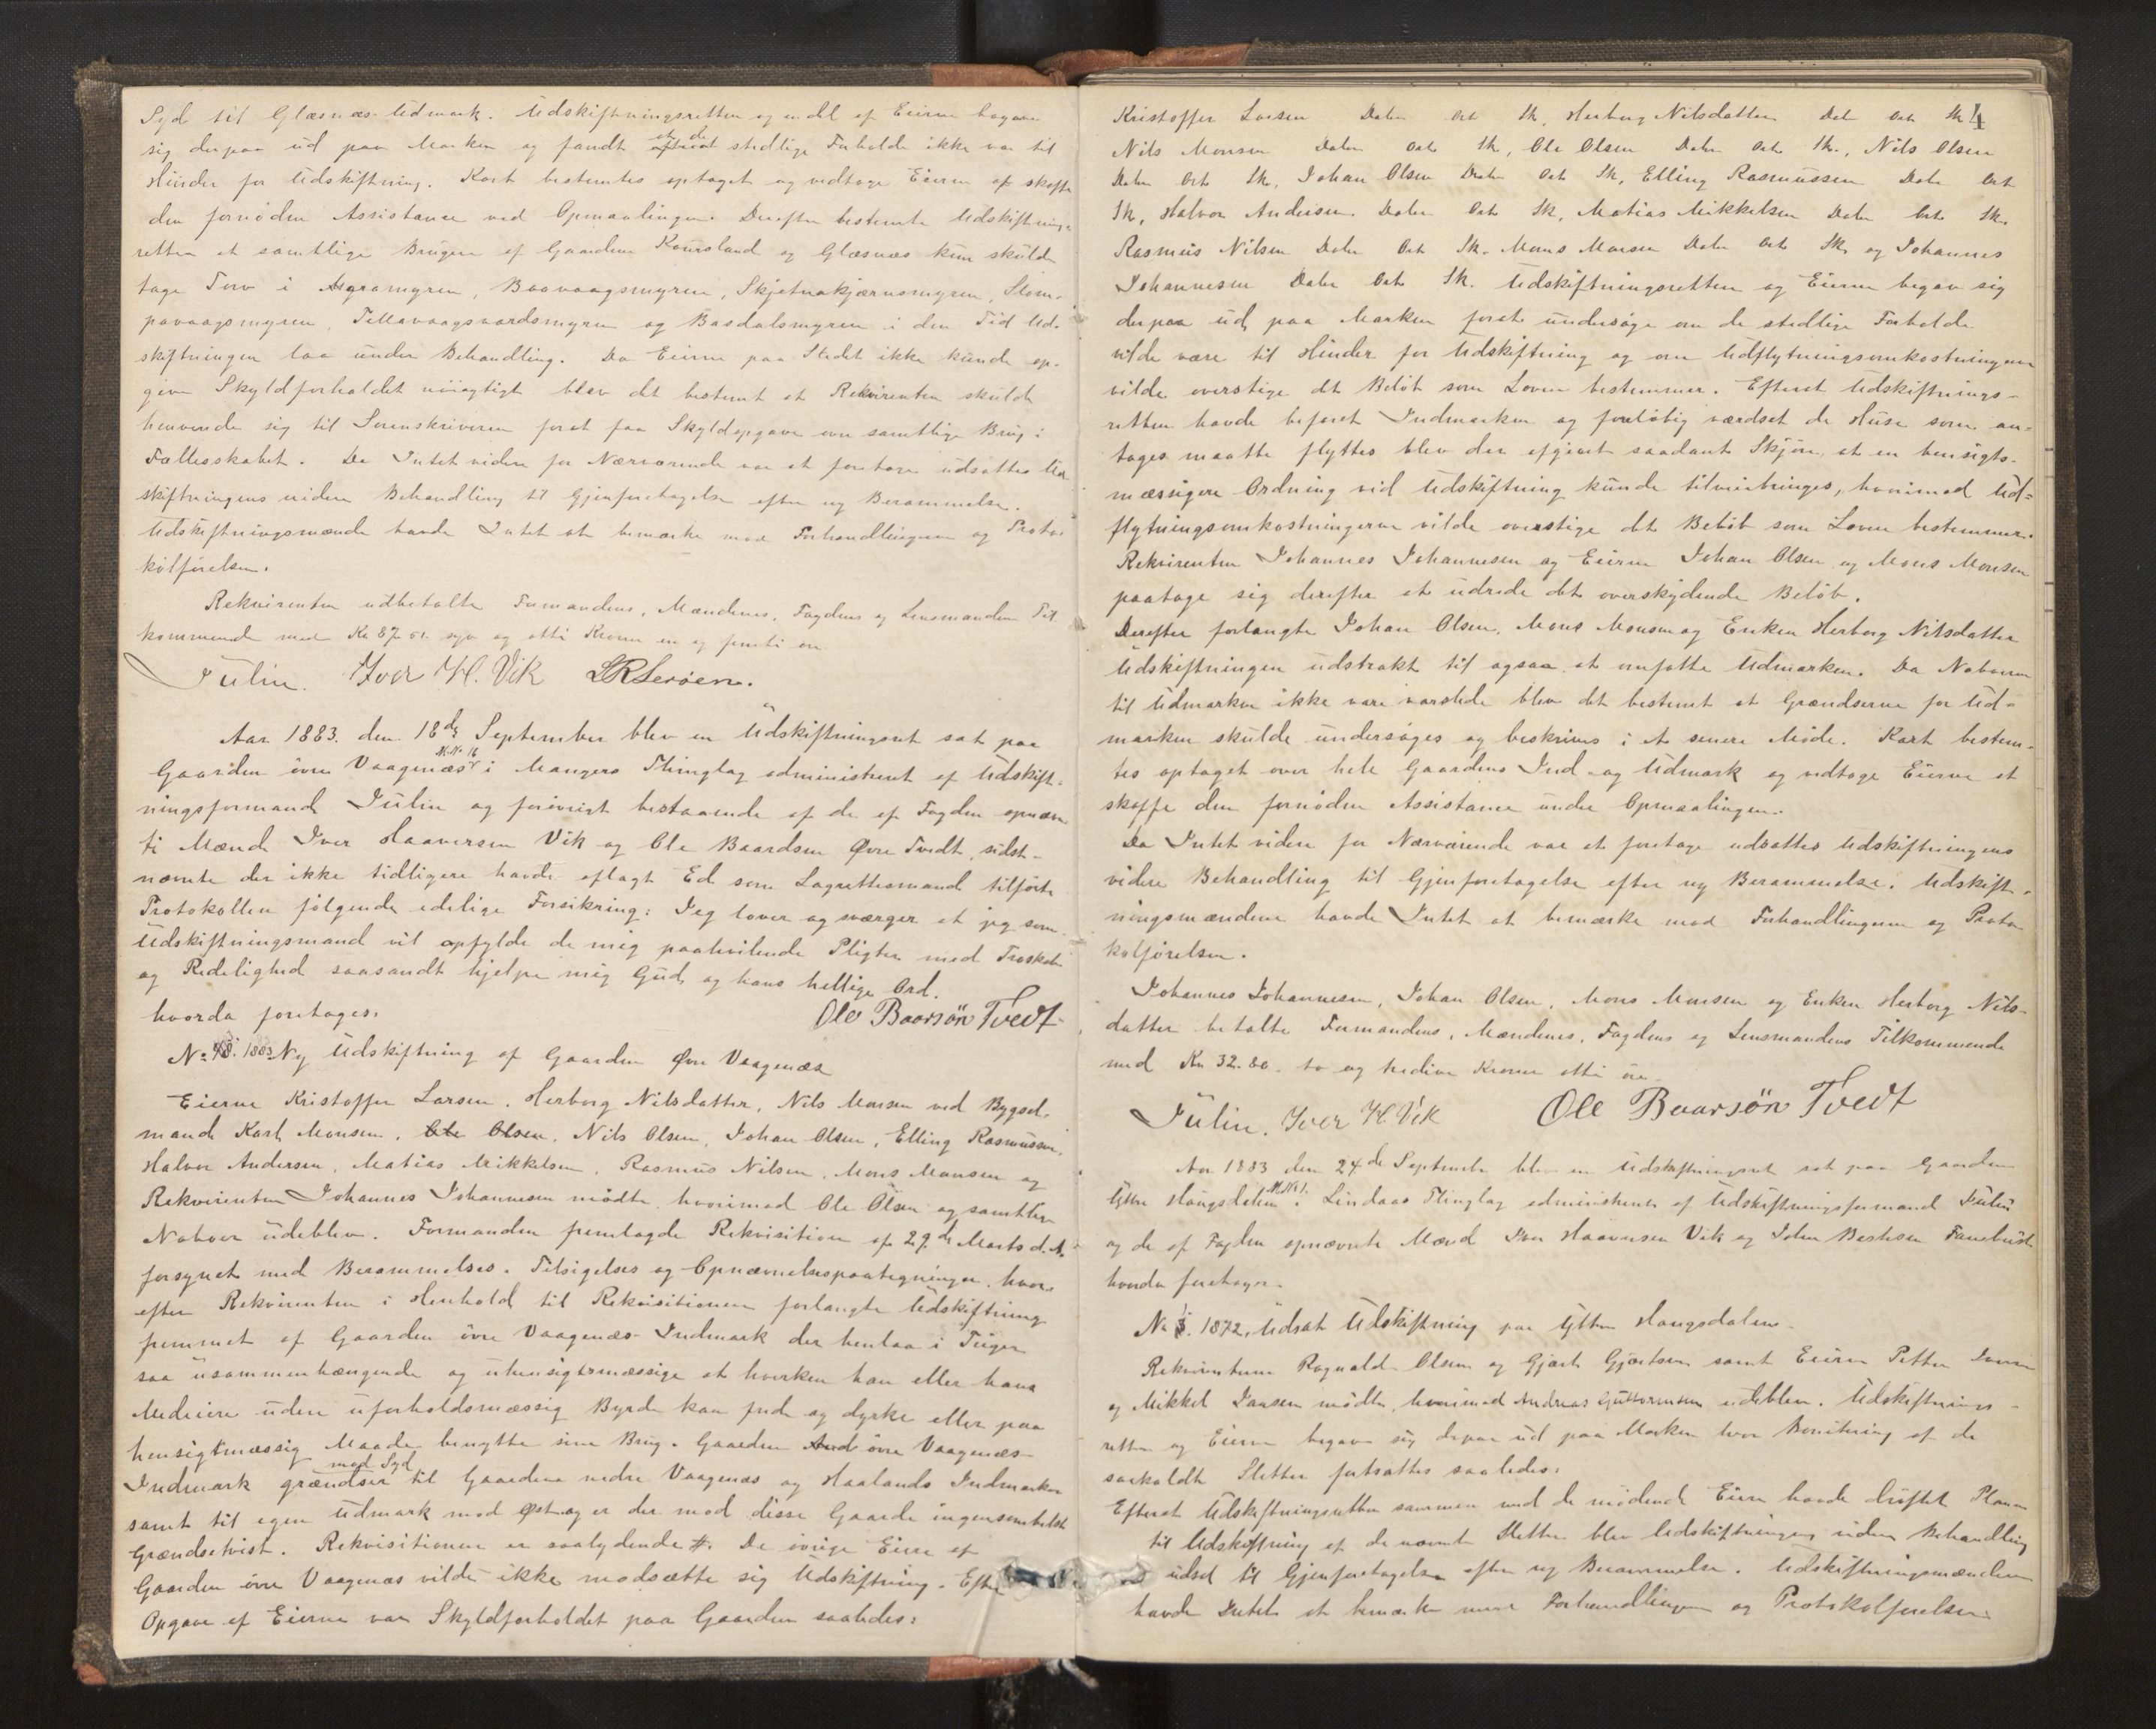 Syd til Glæsnæs Udmark. Udskiftningsretten og endel af Eierne begave
sig derpaa ud paa Marken og fandt at de stedlige Forholde ikke var til
Hinder for Udskiftning. Kart bestemtes optaget og vedtoge Eierne at skaffe
den fornødne Assistance ved Opmaalingen. Derefter bestemte Udskiftnings-
retten at samtlige Brugere af Gaardene Koursland og Glæsnæs kun skulde
tage Torv i Agramyren, Baavaagsmyren, Skjetnakjærnsmyren, Slom-
pavaagsmyren, Tellavaagsvardsmyren og Basdalsmyren i den Tid Ud-
skiftningen laa under Behandling. Da Eierne paa Stedet ikke kunde op-
give Skyldforholdet nöiagtigt blev det bestemt at Rekvirenten skulde
henvende sig til Sorenskriveren forat faa Skyldopgave over samtlige Brug i
Fællesskabet. Da Intet videre for Nærværende var at foretage udsattes Ud
skiftningens videre Behandling til Gjenforetagelse efter ny Berammelse.
Udskiftningsmændene havde Intet at bemærke mod Forhandlingerne og Proto-
kolførelsen.
Rekvirenten udbetalte Formandens, Mændenes, Fogdens og Lensmandens Til
kommende med Kr 87.51. syv og otti Kroner en og femti øre.
Julin. Iver H. Vik LR Lerøen.
Aar 1883. den 18de September blev en Udskiftningsret sat paa
Gaarden övre Vaagenæs M.No. 16 i Mangers Thinglag administreret af Udskift-
ningsformand Julin og forövrigt bestaaende af de af Fogden opnævn
te Mænd Iver Haaversen Vik og Ole Baardsen Øvre Tvedt, sidst-
nævnte der ikke tidligere havde aflagt Ed som Lagrettesmand tilførte
Protokollen følgende edelige Forsikring: Jeg lover og sværger at jeg som
Udskiftningsmand vil opfylde de mig paahvilende Pligter med Troskab
og Redelighed saasandt hjelpe mig Gud og hans hellige Ord.
hvorda foretoges: Ole Baarsön Tvedt
No 48. 1883 Ny Udskiftning af Gaarden Øvre Vaagenæs
Eierne Kristoffer Larsen, Herborg Nilsdatter, Nils Monsen ved Bygsel-
mand Karl Monsen, Ole Olsen, Nils Olsen, Johan Olsen, Elling Rasmussen,
Halvor Andersen, Matias Mikkelsen, Rasmus Nilsen, Mons Monsen og
Rekvirenten Johannes Johannesen mödte, hvorimod Ole Olsen og samtlige
Naboer udeblev. Formanden fremlagde Rekvisition af 29de Marts d.A.
forsynet med Berammelses-Tilsigelses og Opnævnelsespaategninger, hvor-
efter Rekvirenten i Henhold til Rekvisitionen forlangte Udskiftning
fremmet af Gaarden övre Vaagenæs Indmark der henlaa i Teiger
saa usammenhængende og uhensigtsmæssige at hverken han eller hans
Medeiere uden uforholdsmæssig Byrde kan frede og dyrke eller paa
hensigtmæssig Maade benytte sine Brug. Gaarden övre Vaagenæs
Indmark grændser mod Syd til Gaardene nedre Vaagenæs og Haalands Indmarker
samt til egen Udmark mod Øst og er der mod disse Gaarde ingensomhelst
Grændsetvist. Rekvisitionen er saalydende #. De övrige Eiere af
Gaarden övre Vaagenæs vilde ikke modsætte sig Udskiftning. Efter
Opgave af Eierne var Skyldforholdet paa Gaarden saaledes:
4
Kristoffer Larsen Daler Ort Sk, Herborg Nilsdatter Daler Ort Sk
Nils Monsen Daler Ort Sk, Ole Olsen Daler Ort Sk., Nils Olsen
Daler Ort Sk, Johan Olsen Daler Ort Sk, Elling Rasmussen Daler Ort
Sk, Halvor Andersen Daler Ort Sk, Matias Mikkelsen Daler Ort Sk.
Rasmus Nilsen Daler Ort Sk. Mons Monsen Daler Ort Sk og Johannes
Johannesen Daler Ort Sk. Udskiftningsretten og Eierne begav sig
derpaa ud paa Marken forat undersöge om de stedlige Forholde
vilde være til Hinder for Udskiftning og om Udflytningsomkostningerne
vilde overstige det Beløb som Loven bestemmer. Efterat Udskiftnings-
retten havde befaret Indmarken og foreløbig værdsat de Huse som an-
toges maatte flyttes blev der afgivet saadant Skjøn, at en hensigts-
mæssigere Ordning ved Udskiftning kunde tilveiebringes, hvorimod Ud-
flytningsomkostningerne vilde overstige det Beløb som Loven bestemmer.
Rekvirenten Johannes Johannesen og Eierne Johan Olsen og Mons Monsen
paatoge sig derefter at udrede det overskydende Beløb.
Derefter forlangte Johan Olsen, Mons Monsen og Enken Herborg Nilsdatter
Udskiftningen udstrakt til ogsaa at omfatte Udmarken. Da Naboerne
til Udmarken ikke vare varslede blev det bestemt at Grændserne for Ud-
marken skulde undersøges og beskrives i et senere Møde. Kart bestem-
tes optaget over hele Gaardens Ind- og Udmark og vedtoge Eierne at
skaffe den fornødne Assistance under Opmaalingen.
Da Intet videre for Nærværende var at foretage udsattes Udskiftningens
videre Behandling til Gjenforetagelse efter ny Berammelse. Udskift-
ningsmændene havde Intet at bemærke mod Forhandlingerne og Proto
kolförelsen.
Johannes Johannesen, Johan Olsen, Mons Monsen og Enken Herborg Nils-
datter betalte Formandens, Mændenes, Fogdens og Lensmandens Tilkommende
med Kr 32.80. to og tredive Kroner otti øre.
Julin. Iver H. Vik Ole Baarsön Tvedt
Aar 1883 den 24de September blev en Udskiftningsret sat paa Gaarden
Yttre Hougsdalen M.No. 1. i Lindaas Thinglag administreret af Udskiftningsformand Julin
og de af Fogden opnævnte Mænd Iver Haaversen Vik og John Fanebust
hvorda foretoges.
No 1872, Udsat Udskiftning paa Yttre Hougsdalen
Rekvirenterne Ragnvald Olsen og Gjert Gjertsen samt Eierne Petter Iversen
og Mikkel Jansen mødte, hvorimod Andreas Guttormsen udeblev. Udskiftnings-
retten og Eierne begave sig derpaa ud paa Marken hvor Bonitering af de
saakaldte Sletter fortsattes saaledes:
Efterat Udskiftningsretten sammen med de mødende Eiere havde drøftet Planen
til Udskiftning af de nævnte Sletter blev Udskiftningens videre Behandling
udsat til Gjenforetagelse efter ny Berammelse. Udskiftningsmændene
havde Intet at bemærke mod Forhandlingen og Protokolførelsen.